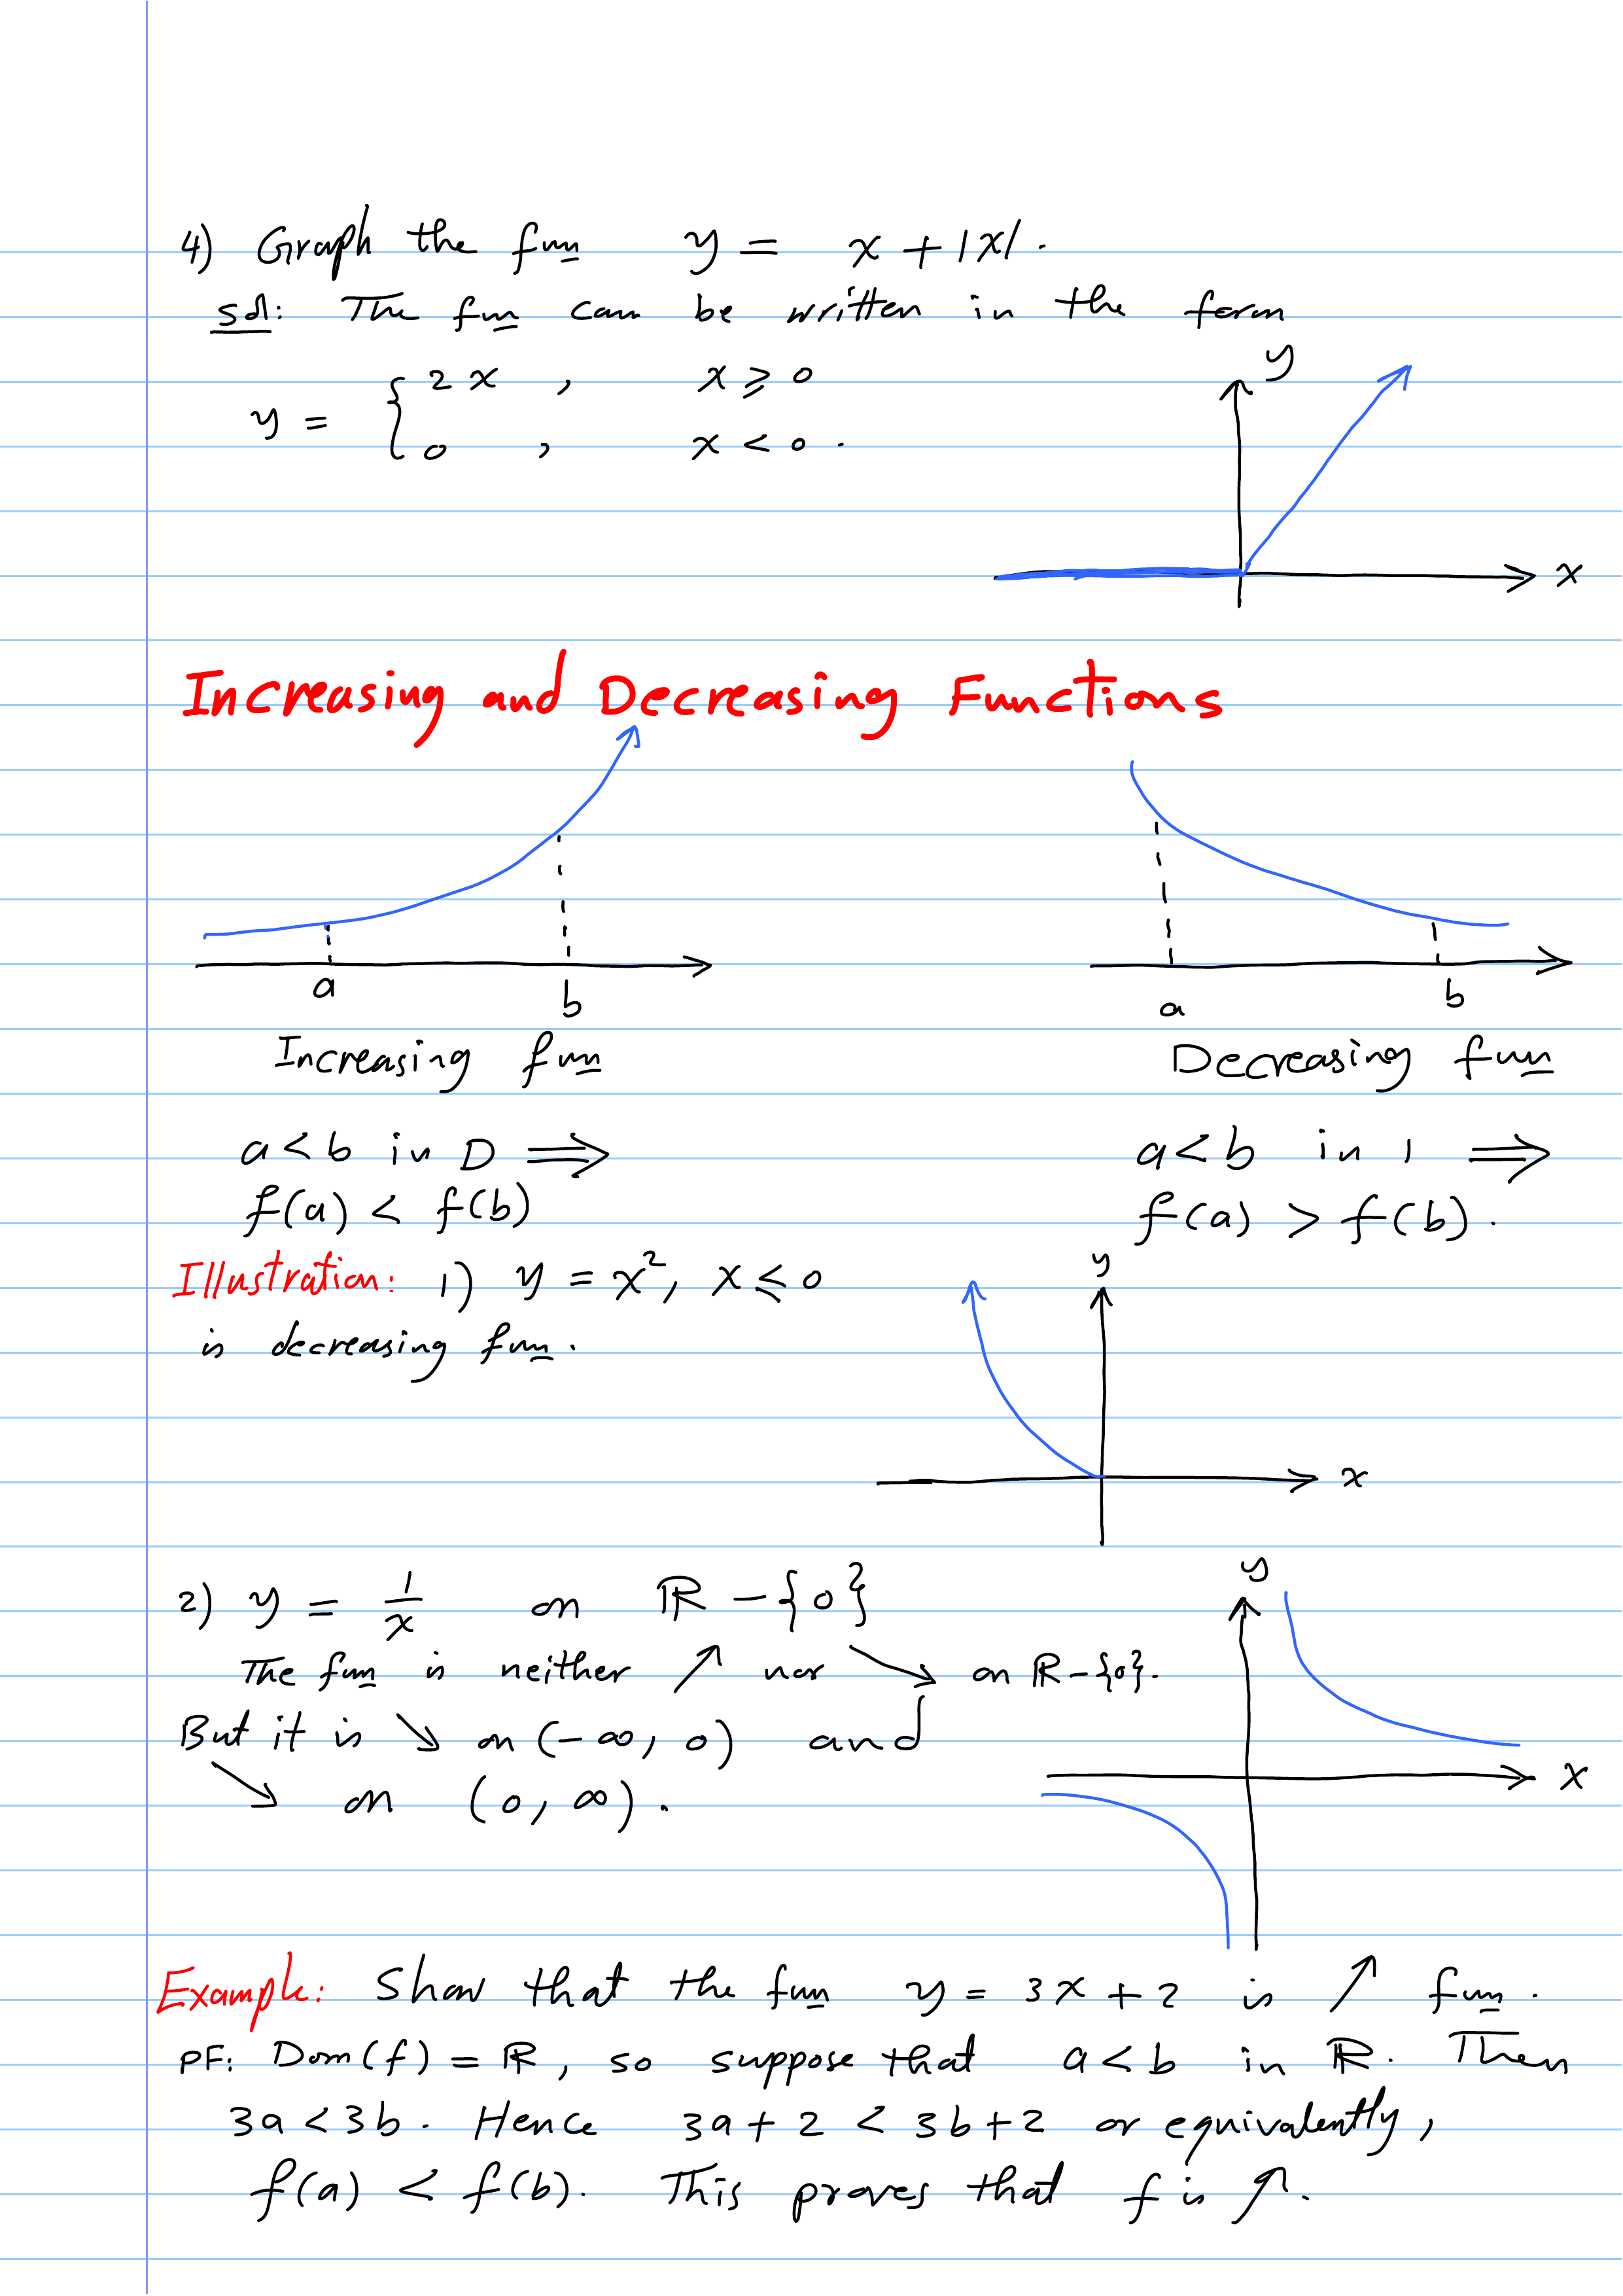 4) Graph the fun y = x + |x|.
sol: The fun can be written in the form
y = { 2x , x ⩾ 0
0 , x < 0 .
y
x
Increasing and Decreasing Functions
a b
a b
Increasing fun Decreasing fun
a < b in D ⟹ a < b in I ⟹
f(a) < f(b) f(a) > f(b) .
Illustration: 1) y = x², x ⩽ 0
is decreasing fun .
y
x
2) y = 1/x on ℝ - {0}
The fun is neither ↗ nor ↘ on ℝ - {0}.
But it is ↘ on (-∞, 0) and
↘ on (0, ∞) .
y
x
Example: Show that the fun y = 3x + 2 is ↗ fun .
PF: Dom(f) = ℝ, so suppose that a < b in ℝ. Then
3a < 3b . Hence 3a + 2 < 3b + 2 or equivalently,
f(a) < f(b). This proves that f is ↗.